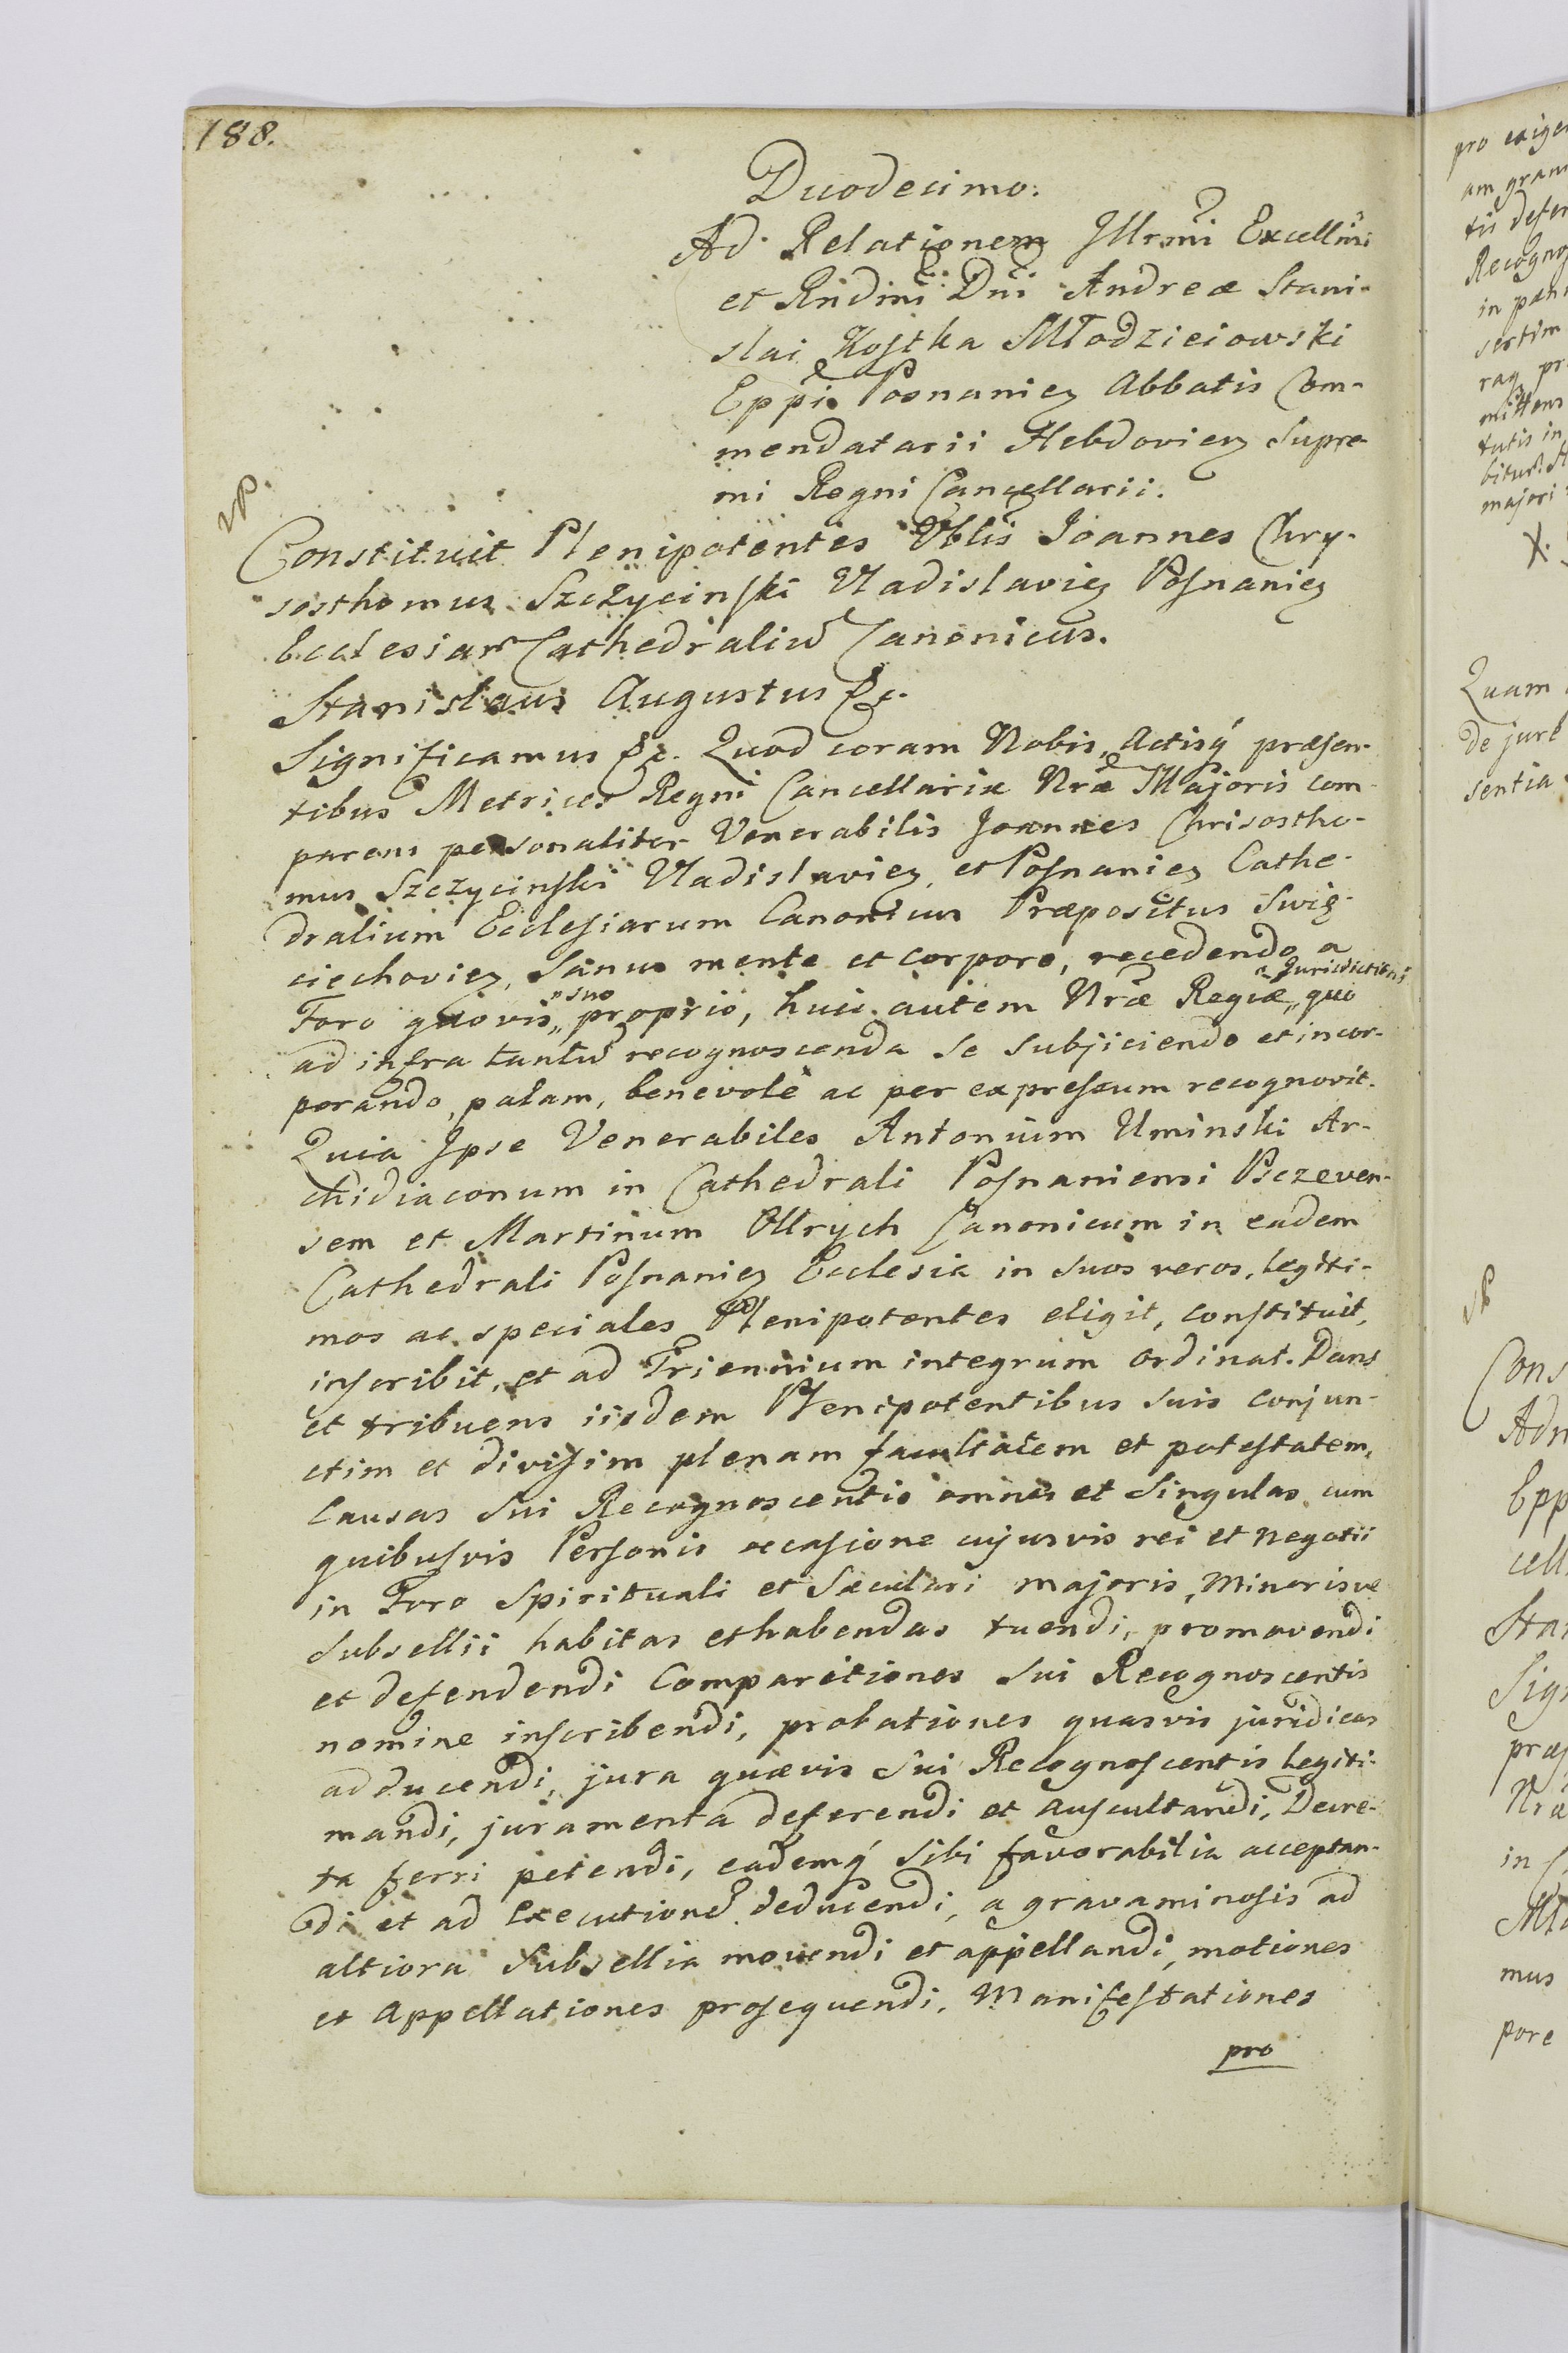 188.
Duodecimo.
Ad Relationem Illrmi Excellmi
et Rndmi Dni Andreæ Stani-
slai Kostka Młodzieiowski
Eppi Posnanien Abbatis Com-
mendatarii Hebdovien Supre-
mi Regni Cancellarii.
Constituit Plenipotentes Vblis Joannes Chry-
sosthomus Szczycinski Vladislavien Posnanien
Ecclesiar Cathedraliu Canonicus.
Stanislaus Augustus &c.
Significamus &c. Quod coram Nobis, Actisq præsen-
tibus Metrices Regni Cancellariæ Nræ Majoris com-
parens personaliter Venerabilis Joannes Chrisostho-
mus Szczycinski Vladislavien, et Posnanien Cathe-
dralium Ecclesiarum Canonicus Præpositus Swię-
ciechovien, Sanus mente et corpore, recedendo a
Foro quovis suo proprio, huic autem Nræ Regiæ Jurisdictioni quo
ad infra tantu recognoscenda se subjiciendo et incor-
porando, palam, benevole ac per expressum recognovit.
Quia Ipse Venerabiles Antonium Uminski Ar-
chidiaconum in Cathedrali Posnaniensi Pczeven-
sem et Martinum Ollrych Canonicum in eadem
Cathedrali Posnanien Ecclesia in suos veros, legiti-
mos ac speciales Plenipotentes eligit, constituit,
inscribit, et ad Triennium integrum ordinat. Dans
et tribuens iisdem Plenipotentibus suis conjun-
ctim et divisim plenam facultatem et potestatem,
Causas sui Recognoscentis omnes et singulas cum
quibusvis Personis occasione cujusvis rei et negotii
in Foro Spirituali et Sæculari majoris, Minorisve
Subsellii habitas et habendas tuendi, promovendi
et defendendi Comparitiones sui Recognoscentis
nomine inscribendi, probationes quasvis juridicas
adducendi, jura quævis sui Recognoscentis legiti-
mandi, juramenta deferendi et auscultandi, Decre-
ta ferri petendi, eademq sibi favorabilia acceptan-
di et ad Executione deducendi, a gravaminosis ad
altiora Subsellia movendi et appellandi, motiones
et Appellationes prosequendi, Manifestationes
pro